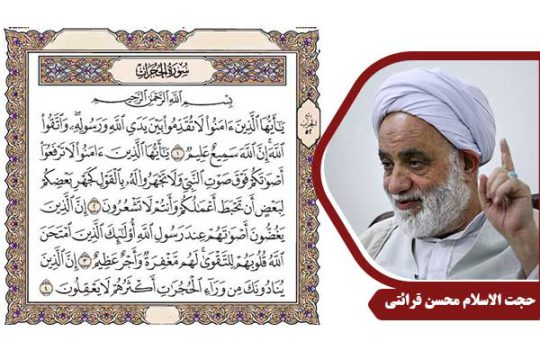 سُورَةُ الحُجُرَاتِ
بِسْمِ اللَّهِ الرَّحْمَٰنِ الرَّحِيمِ
يَٰٓأَيُّهَا الَّذِينَ ءَامَنُوا لَا تُقَدِّمُوا بَيْنَ يَدَيِ اللَّهِ وَرَسُولِهِۦ وَاتَّقُوا
اللَّهَ إِنَّ اللَّهَ سَمِيعٌ عَلِيمٌ ١ يَٰٓأَيُّهَا الَّذِينَ ءَامَنُوا لَا تَرْفَعُوٓا
أَصْوَٰتَكُمْ فَوْقَ صَوْتِ النَّبِيِّ وَلَا تَجْهَرُوا لَهُۥ بِالْقَوْلِ كَجَهْرِ بَعْضِكُمْ
لِبَعْضٍ أَن تَحْبَطَ أَعْمَٰلُكُمْ وَأَنتُمْ لَا تَشْعُرُونَ ٢ إِنَّ الَّذِينَ
يَغُضُّونَ أَصْوَٰتَهُمْ عِندَ رَسُولِ اللَّهِ أُو۟لَٰٓئِكَ الَّذِينَ امْتَحَنَ
اللَّهُ قُلُوبَهُمْ لِلتَّقْوَىٰ لَهُم مَّغْفِرَةٌ وَأَجْرٌ عَظِيمٌ ٣ إِنَّ الَّذِينَ
يُنَادُونَكَ مِن وَرَآءِ الْحُجُرَٰتِ أَكْثَرُهُمْ لَا يَعْقِلُونَ ٤
حجت الاسلام محسن قرائتی